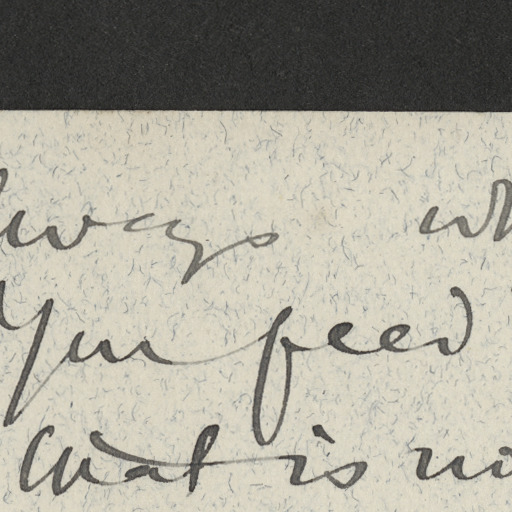 ways wh
you feed
What is no